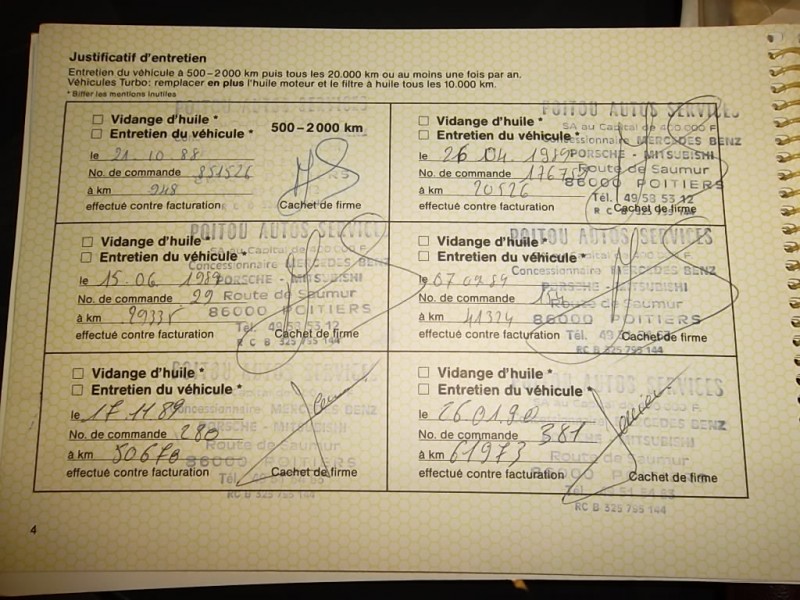 Justificatif d'entretien
Entretien du véhicule à 500-2000 km puis tous les 20.000 km ou au moins une fois par an.
Véhicules Turbo: remplacer en plus l'huile moteur et le filtre à huile tous les 10.000 km.
* Biffer les mentions inutiles
Vidange d'huile *
Entretien du véhicule * 500-2000 km
le 21.10 88
No. de commande 851526
à km 948
effectué contre facturation Cachet de firme
POITOU AUTOS SERVICES
Vidange d'huile *
SA au Capital de 400.000 F
Entretien du véhicule *
Concessionnaire MERCEDES BENZ
le 26 04. 1989
PORSCHE - MITSUBISHI
No. de commande
Route de Saumur
à km 20526
86000 POITIERS
Tél. 49 58 53 12
effectué contre facturation Cachet de firme
R C B 325 755 144
POITOU AUTOS SERVICES
Vidange d'huile *
SA au Capital de 400.000 F
Entretien du véhicule *
Concessionnaire MERCEDES BENZ
le 15.06 1989
PORSCHE - MITSUBISHI
No. de commande 29
Route de Saumur
à km 29335
86000 POITIERS
Tél. 49 58 53 12
effectué contre facturation Cachet de firme
R C B 325 755 144
POITOU AUTOS SERVICES
Vidange d'huile *
Entretien du véhicule *
Concessionnaire MERCEDES BENZ
le
PORSCHE - MITSUBISHI
No. de commande
Route de Saumur
à km 41324
86000 POITIERS
effectué contre facturation Tél. Cachet de firme
RC B 325 755 144
Vidange d'huile *
Entretien du véhicule *
le 17.11 89
Concessionnaire MERCEDES BENZ
PORSCHE - MITSUBISHI
No. de commande 280
Route de Saumur
à km 50670
86000 POITIERS
effectué contre facturation Cachet de firme
RC B 325 755 144
POITOU AUTOS SERVICES
Vidange d'huile *
Entretien du véhicule *
le 26 01 90
MERCEDES BENZ
No. de commande 381
MITSUBISHI
Route de Saumur
à km 61973
86000 POITIERS
effectué contre facturation Cachet de firme
RC B 325 755 144
4